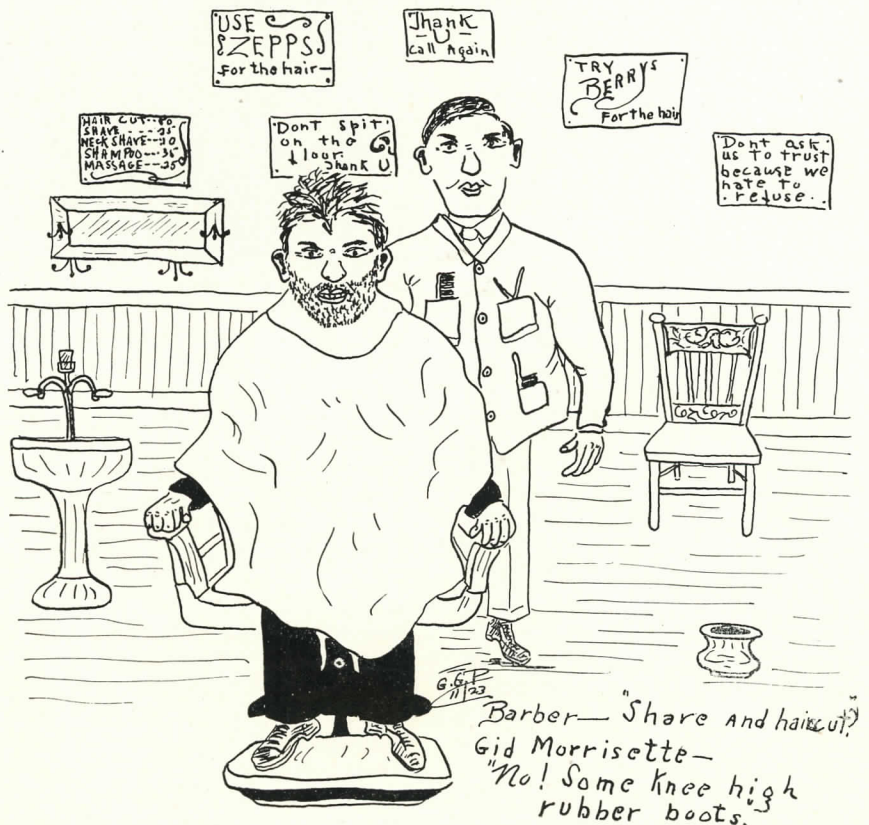 USE
ZEPPS
for the hair—
Thank
-U-
Call Again
TRY
BERRYS
For the hair
HAIR CUT--50
SHAVE----25
NECK SHAVE--10
SHAMPOO---35
MASSAGE---25
Dont spit
on the
flour
Thank U
Dont ask
us to trust
because we
hate to
refuse.
G.G.P
11/23
Barber— "Shave and haircut?"
Gid Morrisette—
"No! Some Knee high
rubber boots."